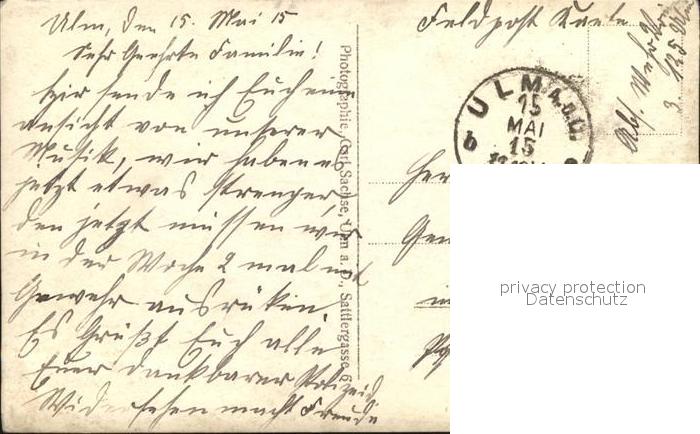 Ulm, den 15. Mai 15
Sehr Geehrte Familie!
Hir sende ich Euch eine
ansicht von unserer
Musik, wir haben e
jetzt etwas strenger,
den jetzt müssen wir
in der Woche 2 mal mit
Gewehr ausrüken.
Es Grüßt Euch alle
Euer dankbarer
Widersehen macht Freude
Photographie Carl Sachse, Ulm a. D., Sattlergasse 6
Feldpost Karte
ULM a.D.
15
MAI
15
b
Abs.
3. 125
privacy protection
Datenschutz